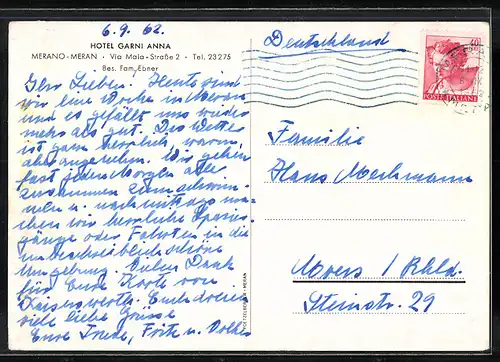 6.9.62.
HOTEL GARNI ANNA
MERANO-MERAN · Via Maia-Straße 2 · Tel. 23275
Bes. Fam. Ebner
Ihr Lieben. Heute sind
wir eine Woche in Meran
und es gefällt uns wieder
mehr als gut. Das Wetter
ist ganz herrlich, warm,
aber angenehm. Wir gehen
fast jeden Morgen alle
zusammen zum schwim-
men u. nachmittags ma-
chen wir herrliche Spazier-
gänge oder Fahrten in die
unbeschreiblich schöne
Umgebung. Vielen Dank
für Eure Karte von
Kaiserswerth. Euch dreien
viele liebe Grüsse
Eure Trude, Fritz u. Volker
Deutschland
40
POSTE ITALIANE
Familie
Hans Meckmann
Moers / Rhld.
Steinstr. 29